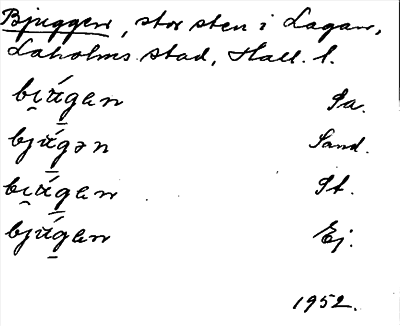 Bjuggen, stor sten i Lagan,
Laholms stad, Hall. l.
bi̯ʉ́gen Sa.
bjʉ́gən Sand.
bi̯ʉ́gen St.
bjʉ́gen Ej.
1952.